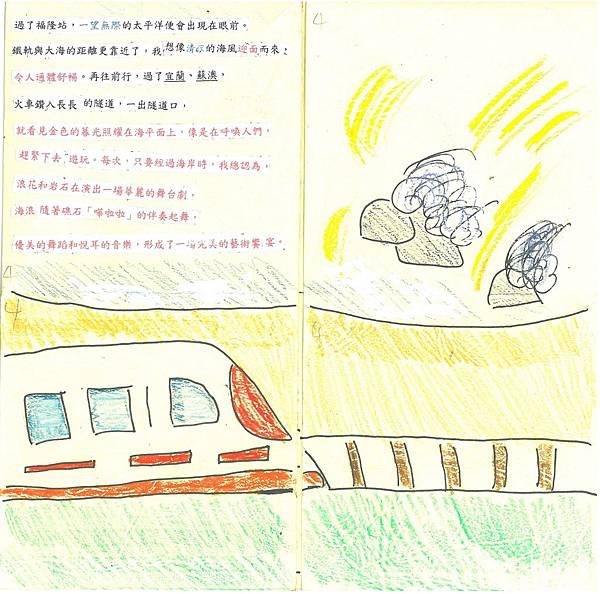 過了福隆站，一望無際的太平洋便會出現在眼前。
鐵軌與大海的距離更靠近了，我想像清涼的海風迎面而來，
令人通體舒暢。再往前行，過了宜蘭、蘇澳，
火車鑽入長長的隧道，一出隧道口，
就看見金色的暮光照耀在海平面上，像是在呼喚人們，
趕緊下去遊玩。每次，只要經過海岸時，我總認為，
浪花和岩石在演出一場華麗的舞台劇，
海浪隨著礁石「嘩啦啦」的伴奏起舞，
優美的舞蹈和悅耳的音樂，形成了一場完美的藝術饗宴。
4
4
4
4